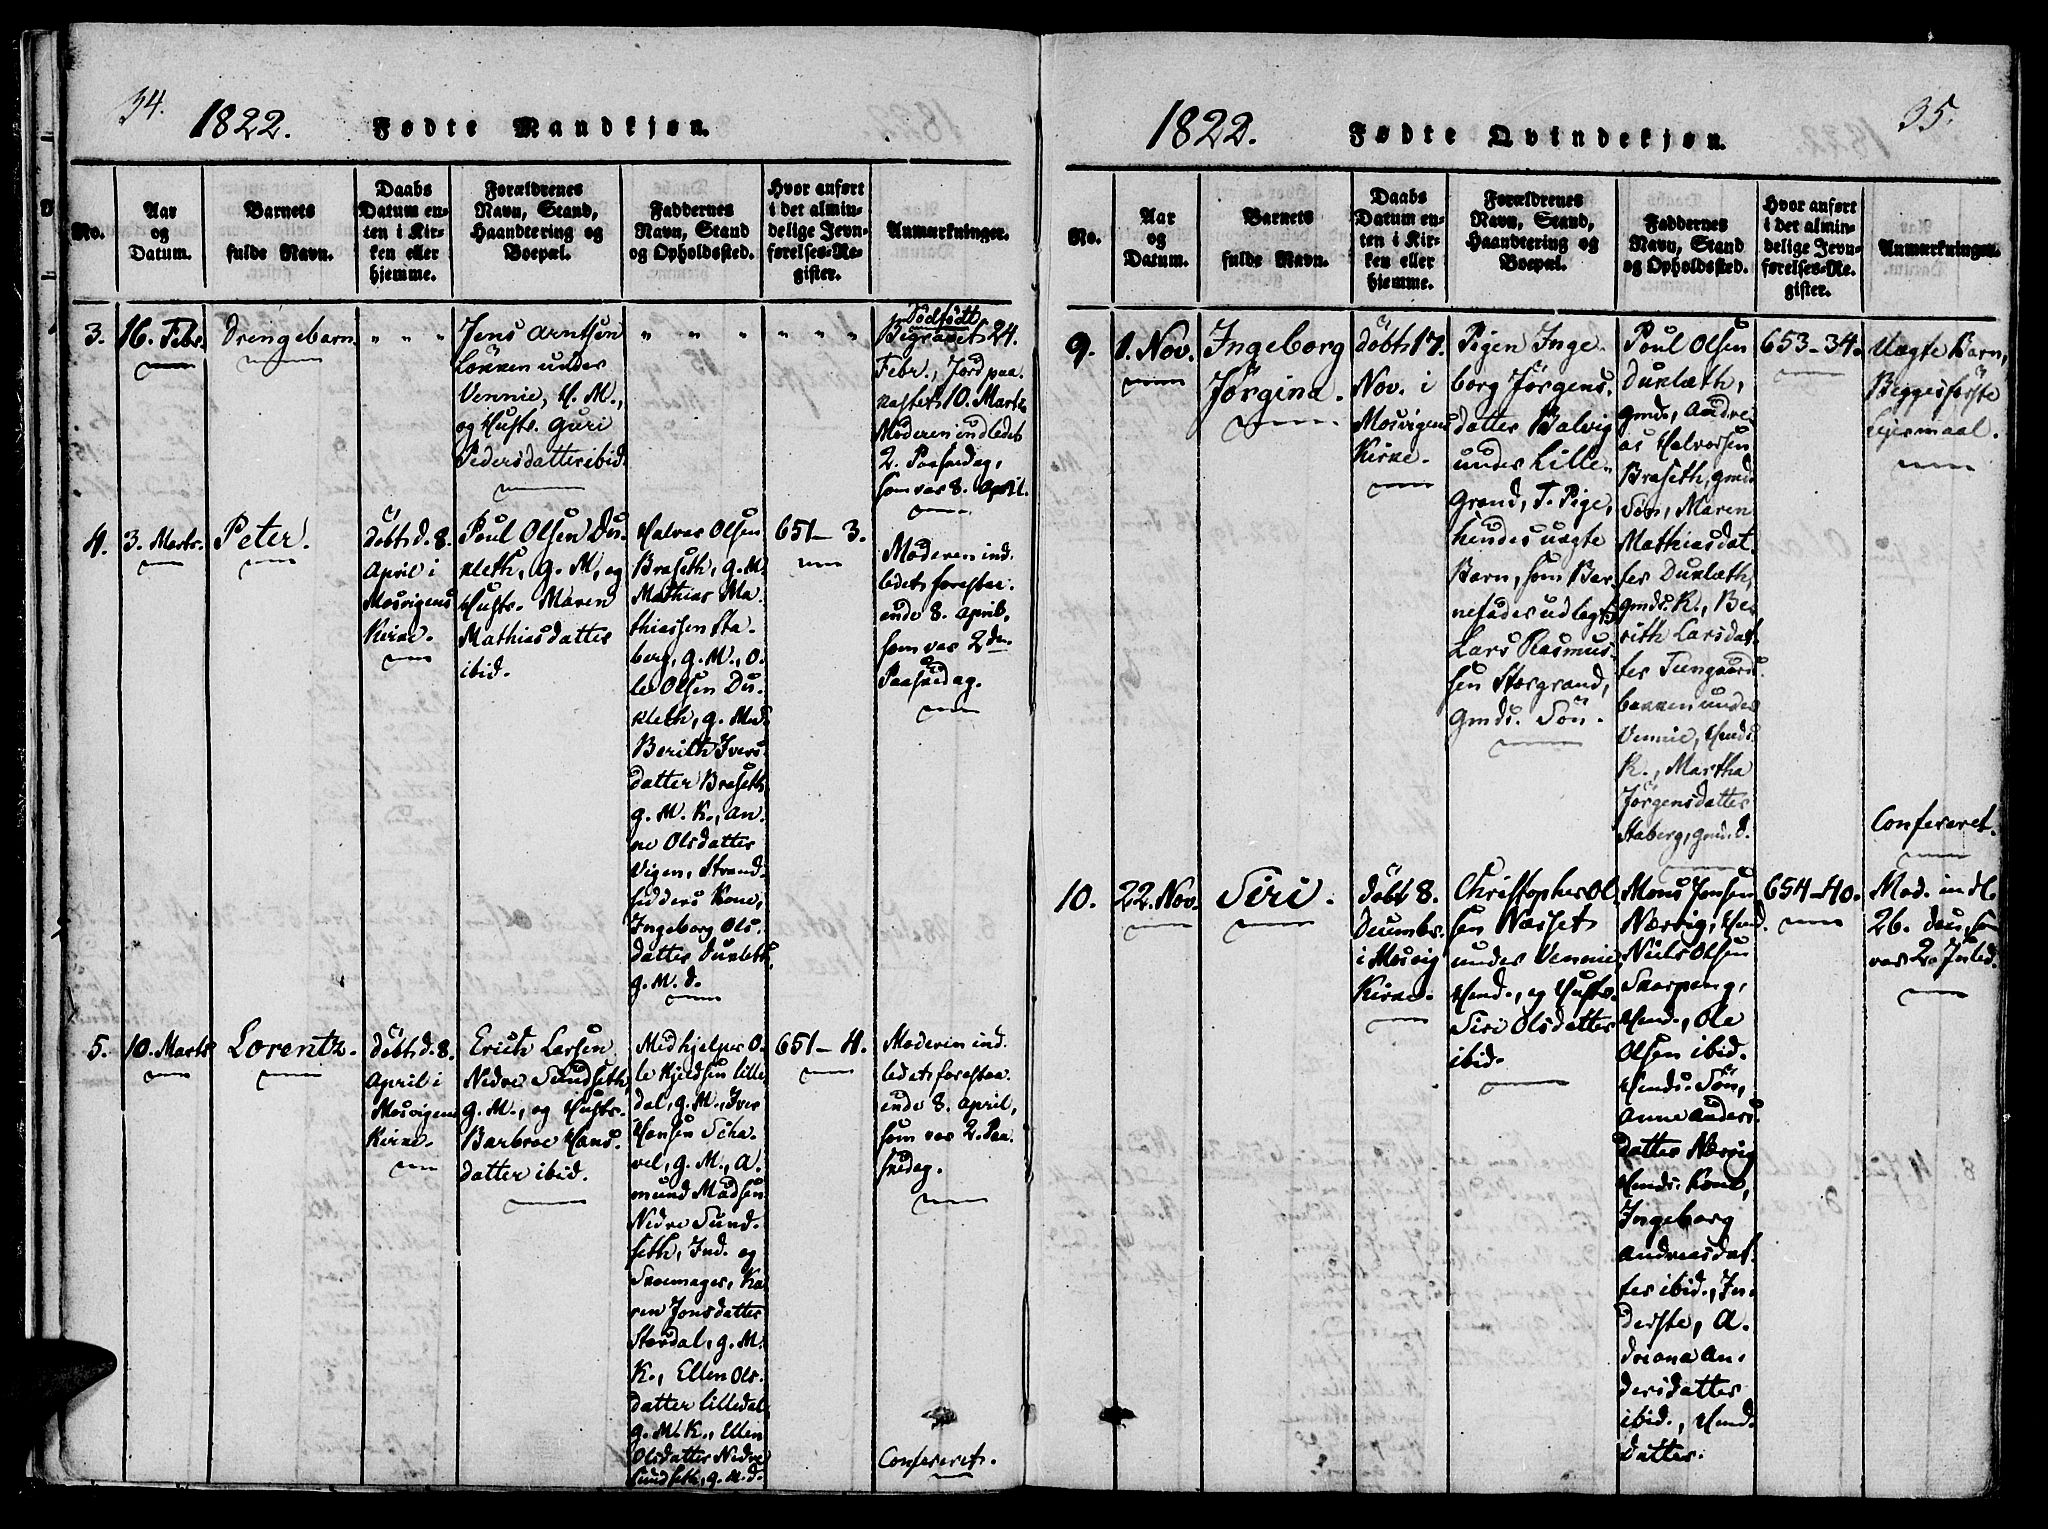 34.
1822. Fødte Mandkjøn.
No.
Aar
og
Datum.
Barnets
fulde Navn.
Daabs
Datum en-
ten i Kir-
ken eller
hjemme.
Forældrenes
Navn, Stand,
Haandtering og
Boepæl.
Faddernes
Navn, Stand
og Opholdssted.
Hvor anført
i det almin-
delige Jevn-
førelses-Re-
gister.
Anmærkninger.
3.
16. Febr.
Drengebarn
" " "
Jens Arntsøn
Løkken under
Vennie, H. M.,
og Hust. Guri
Pedersdatter ibid.
" " "
" " "
Dødfødt
Begravet 24.
Febr., Jord paa-
kastet 10. Marts
Moderen indledet
2. Paaskedag,
som var 8. April.
4.
3. Marts.
Peter.
døbt d. 8.
April i
Mosvigens
Kirke.
Poul Olsen Du-
kleth, g. M, og
Hust. Maren
Mathiasdatter
ibid.
Halvor Olsen
Braseth, g. M.
Mathias Ma-
thiassen Sta-
berg, g. M., O-
le Olsen Du-
kleth, g. Mds
Berith Ivers-
datter Braseth
g. M. K., An-
ne Olsdatter
Vigen, Strand-
sidders Kone,
Ingeborg Ols-
datter Dukleth
g. M. d.
651-3.
Moderen ind-
ledet foresta-
ende 8. April,
som var 2den
Paaskedag.
5.
10. Marts
Lorentz.
døbt d. 8.
April i
Mosvigens
Kirke.
Erich Larsen
Nedre Sundseth,
g. M., og Hust.
Barbroe Hans-
datter ibid.
Medhjelper O-
le Kjeldsen Lille-
dal, g. M., Iver
Hansen Scha-
vel, g. M., A-
mund Madsen
Nedre Sund-
seth, Ind. og
Skoemager, Ka-
ren Jonsdatter
Stordal, g. M.
K., Ellen Ols-
datter Lilledal
g. M. K., Ellen
Olsdatter Nedre
Sundseth, g. M. d.
651-4.
Moderen ind-
ledet foresta-
ende 8. April,
som var 2. Paa-
skedag.
Confereret.
35.
1822. Fødte Qvindekjøn.
No.
Aar
og
Datum.
Barnets
fulde Navn.
Daabs
Datum en-
ten i Kir-
ken eller
hjemme.
Forældrenes
Navn, Stand,
Haandtering og
Boepæl.
Faddernes
Navn, Stand
og Opholdssted.
Hvor anført
i det almin-
delige Jevn-
førelses-Re-
gister.
Anmærkninger.
9.
1. Nov.
Ingeborg
Jørgina.
døbt 17.
Nov. i
Mosvigens
Kirke.
Pigen Inge-
borg Jørgens-
datter Balvig
under Lille-
grand, T. Pige,
hendes uægte
Barn, som Bar-
nefader udlagt
Lars Rasmus-
sen Storgrand,
Gmds. Søn.
Poul Olsen
Duklæth,
gmds, Andre-
as Halvorsen
Braseth, gmds
Søn, Maren
Mathiasdat-
ter Duklæth,
gmds. K., Be-
rith Larsdat-
ter Tungaards-
bakken under
Vennie, Hmds.
K., Martha
Jørgensdatter
Staberg, gm. d.
653-34.
Uægte Barn,
Begges første
Lejermaal.
Confereret.
10.
22. Nov.
Siri.
døbt 8.
Decembr.
i Mosvig
Kirke.
Christopher Ol-
sen Næsset
under Vennie,
Hmd., og Hust.
Siri Olsdatter
ibid.
Mons Jensen
Nærvig, Hmd.
Niels Olsen
Skarpeng,
Hmd., Ole
Olsen ibid.
Hmds. Søn,
Anne Anders-
datter Nærvig
Hmds. Kone,
Ingeborg
Andreasdat-
ter ibid., In-
derste, A-
driana An-
dersdatter
ibid., Hmd.
datter.
654-40.
Mod. indl.
26. Dec., som
var 2. Juled.